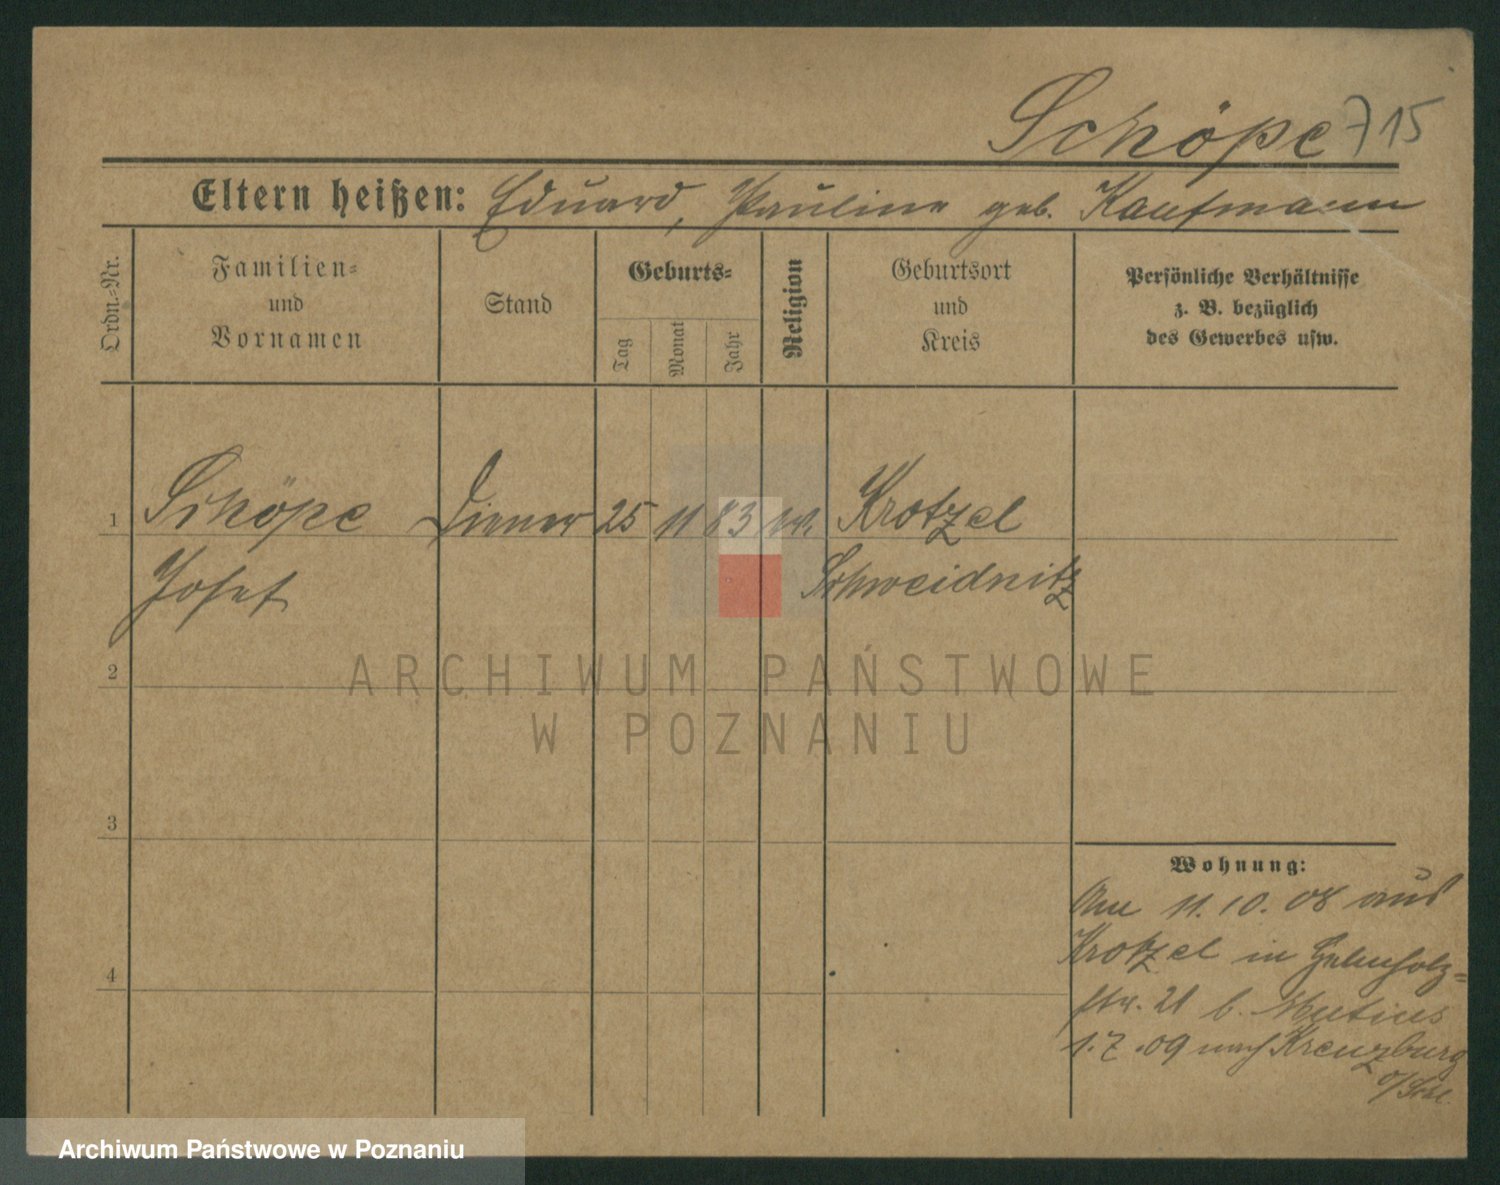 Schöpe 715
Eltern heißen: Eduard, Pauline geb. Kaufmann
Ordn.=Nr.
Familien=
und
Vornamen
Stand
Geburts=
Tag
Monat
Jahr
Religion
Geburtsort
und
Kreis
Persönliche Verhältnisse
z. B. bezüglich
des Gewerbes usw.
1 Schöpe Diener 25 11 83 Krotzel
Josef Schweidnitz
2
3
4
Wohnung:
Am 11.10.08 aus
Krotzel in
str. 21 b. Mutius
1.7.09 nach Kreuzburg
o/Schl.
ARCHIWUM PAŃSTWOWE
W POZNANIU
Archiwum Państwowe w Poznaniu